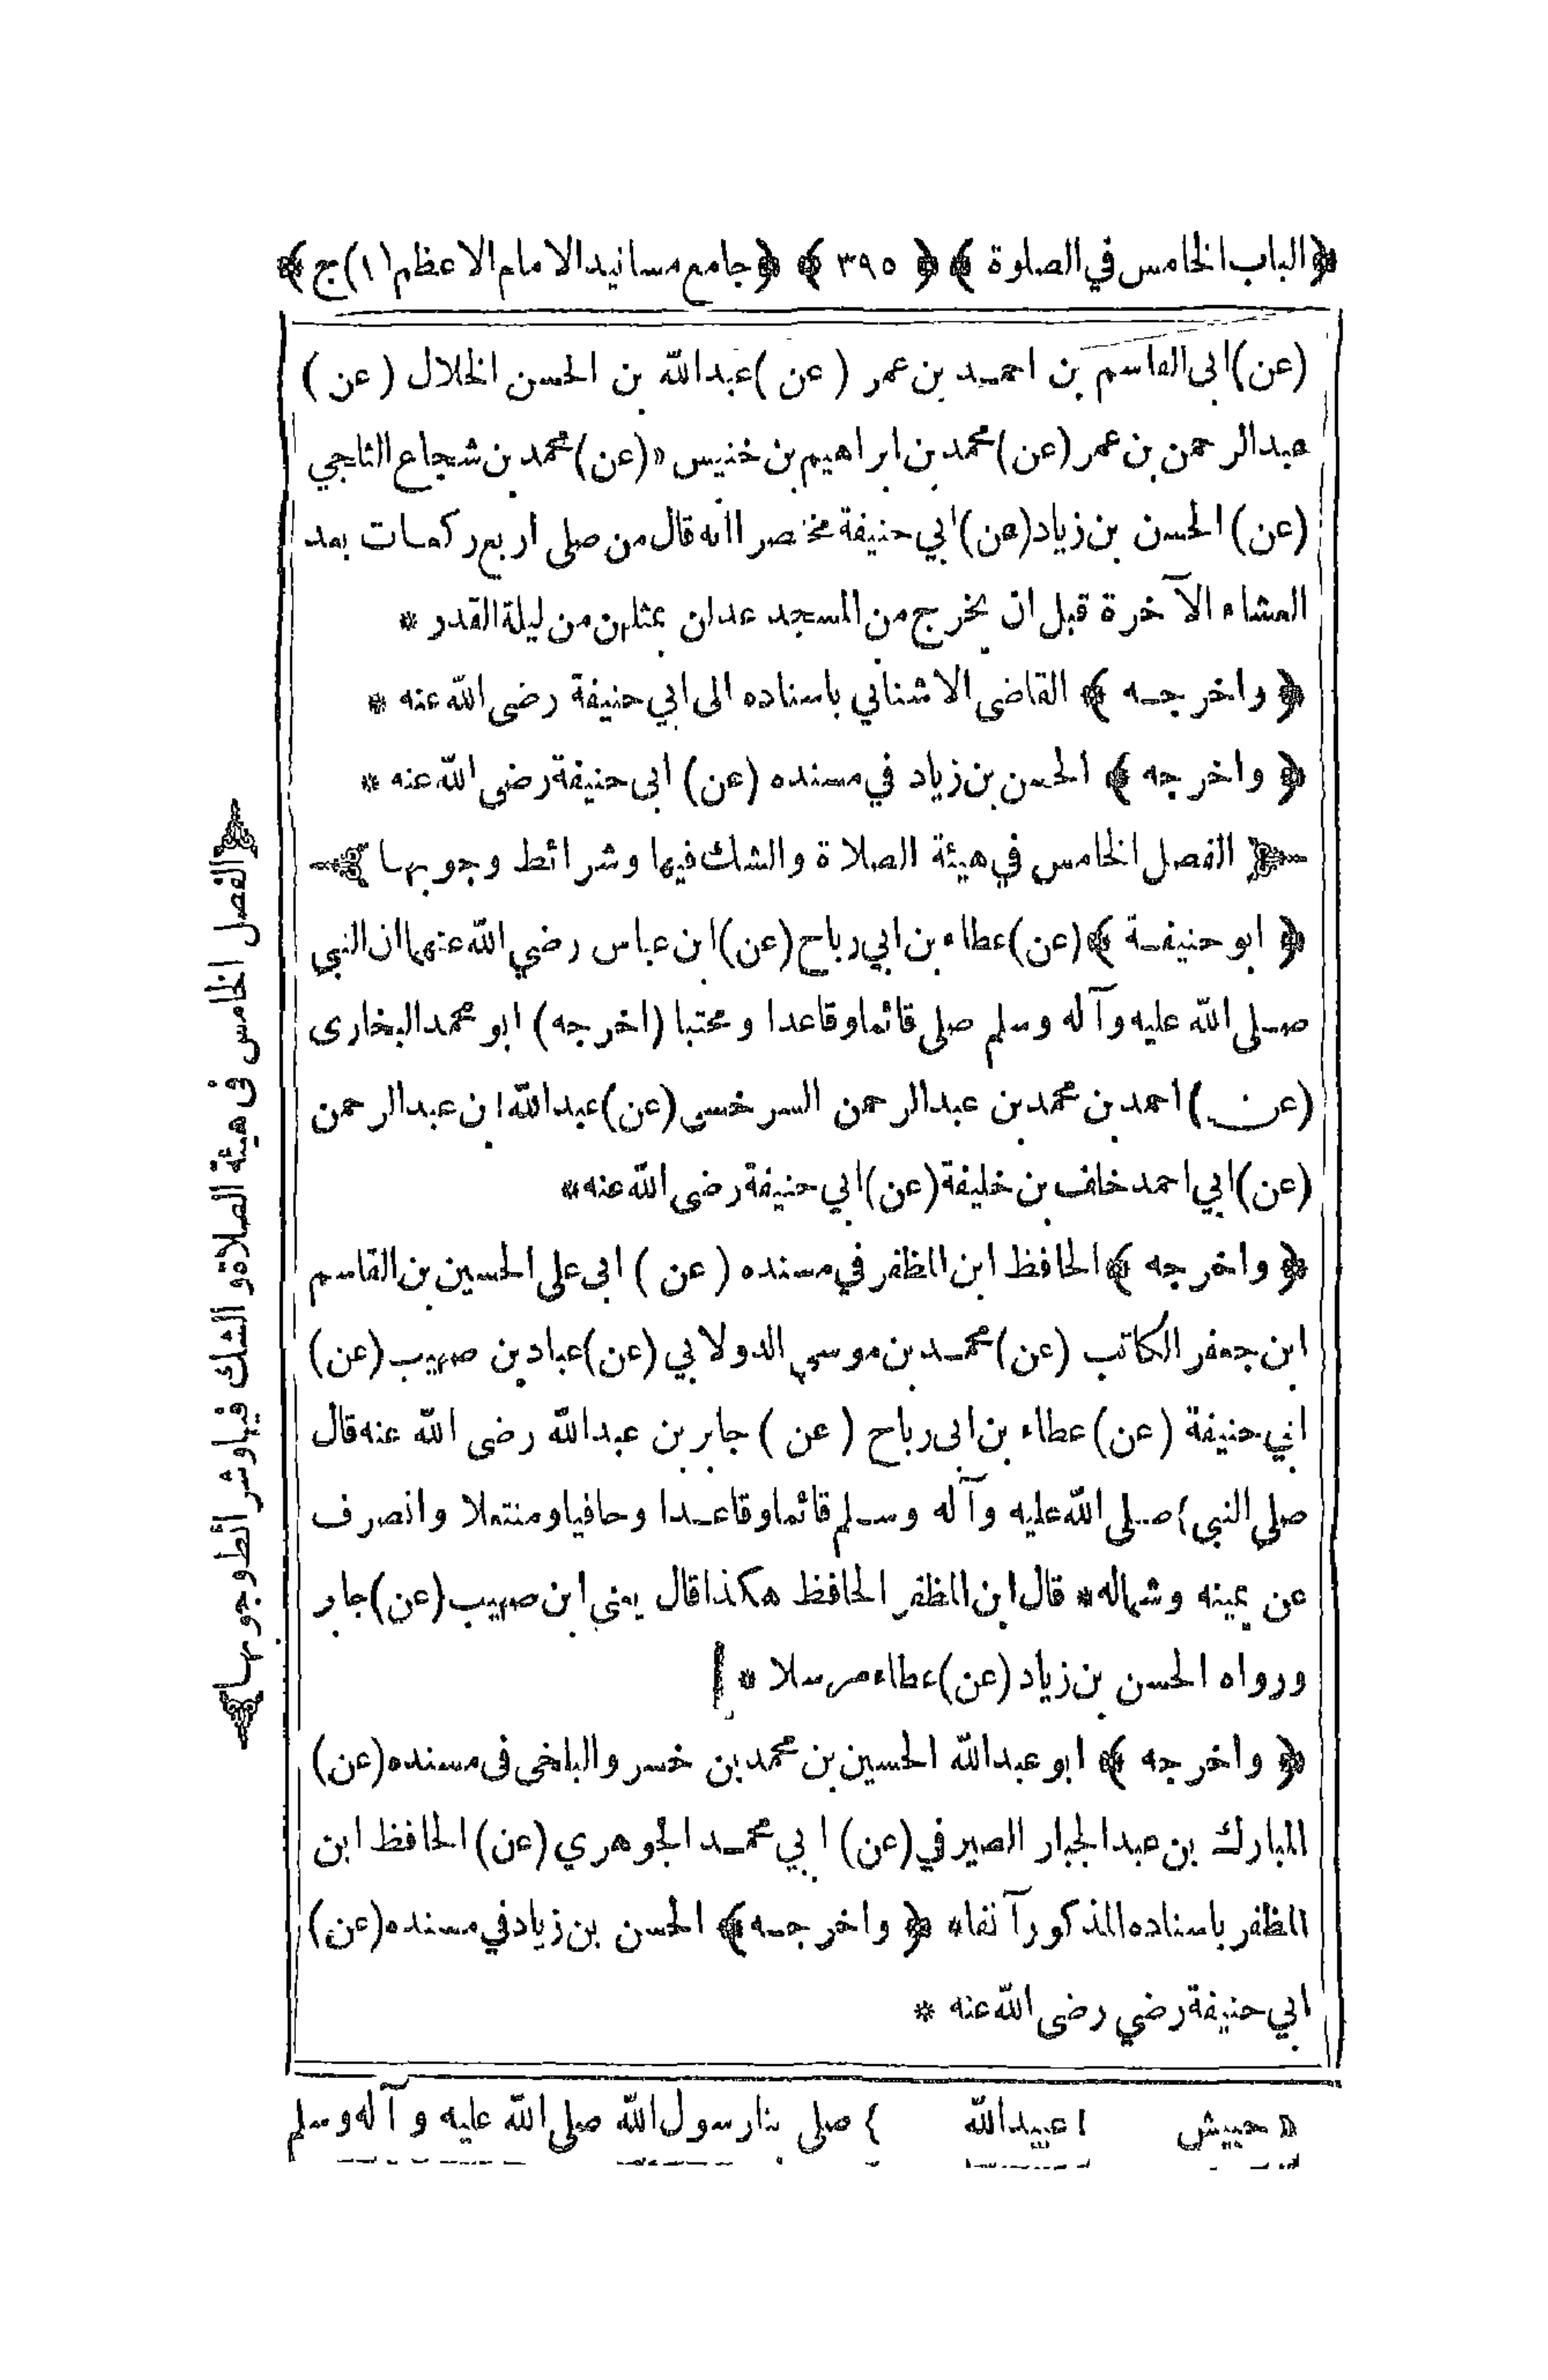 ﴿الباب الخامس في الصلوة﴾ ﴿٣٩٥﴾ ﴿جامع مسانيد الامام الاعظم (١) ج﴾
(عن) ابى القاسم بن احمد بن عمر (عن) عبدالله بن الحسن الخلال (عن)
عبد الرحمن بن عمر (عن) محمد بن ابراهيم بن خنيس « (عن) محمد بن شجاع الثلجي
(عن) الحسن بن زياد (عن) ابي حنيفة مختصرا انه قال من صلى اربع ركعات بعد
العشاء الآخرة قبل ان يخرج من المسجد عدلن بمثلهن من ليلة القدر *
﴿ واخرجه ﴾ القاضى الاشناني باسناده الى ابي حنيفة رضى الله عنه *
﴿ واخرجه ﴾ الحسن بن زياد في مسنده (عن) ابى حنيفة رضى الله عنه *
﴿ الفصل الخامس في هيئة الصلاة والشك فيها وشرائط وجوبها ﴾
﴿ ابو حنيفة ﴾ (عن) عطاء بن ابي رباح (عن) ابن عباس رضي الله عنهما ان النبي
صلى الله عليه وآله وسلم صلى قائما وقاعدا ومحتبا (اخرجه) ابو محمد البخارى
(عن) احمد بن محمد بن عبد الرحمن السرخسى (عن) عبدالله ا بن عبدالرحمن
(عن) ابي احمد خلف بن خليفة (عن) ابي حنيفة رضى الله عنه *
﴿ واخرجه ﴾ الحافظ ابن المظفر في مسنده (عن) ابى على الحسين بن القاسم
ابن جعفر الكاتب (عن) محمد بن موسى الدولابي (عن) عباد بن صهيب (عن)
ابي حنيفة (عن) عطاء بن ابى رباح (عن) جابر بن عبدالله رضى الله عنه قال
صلى النبي } صلى الله عليه وآله وسلم قائما وقاعدا وحافيا ومنتعلا وانصرف
عن يمينه وشماله * قال ابن المظفر الحافظ هكذا قال يعنى ابن صهيب (عن) جابر
ورواه الحسن بن زياد (عن) عطاء مرسلا *
﴿ واخرجه ﴾ ابو عبدالله الحسين بن محمد بن خسرو البلخى فى مسنده (عن)
المبارك بن عبد الجبار الصيرفي (عن) ابي محمد الجوهري (عن) الحافظ ابن
المظفر باسناده المذكور آنفا * ﴿ واخرجه ﴾ الحسن بن زياد في مسنده (عن)
ابي حنيفة رضي رضى الله عنه *
« حبيش ا عبيدالله } صلى بنا رسول الله صلى الله عليه وآله وسلم
﴿الفصل الخامس فى هيئة الصلاة والشك فيها وشرائط وجوبها﴾